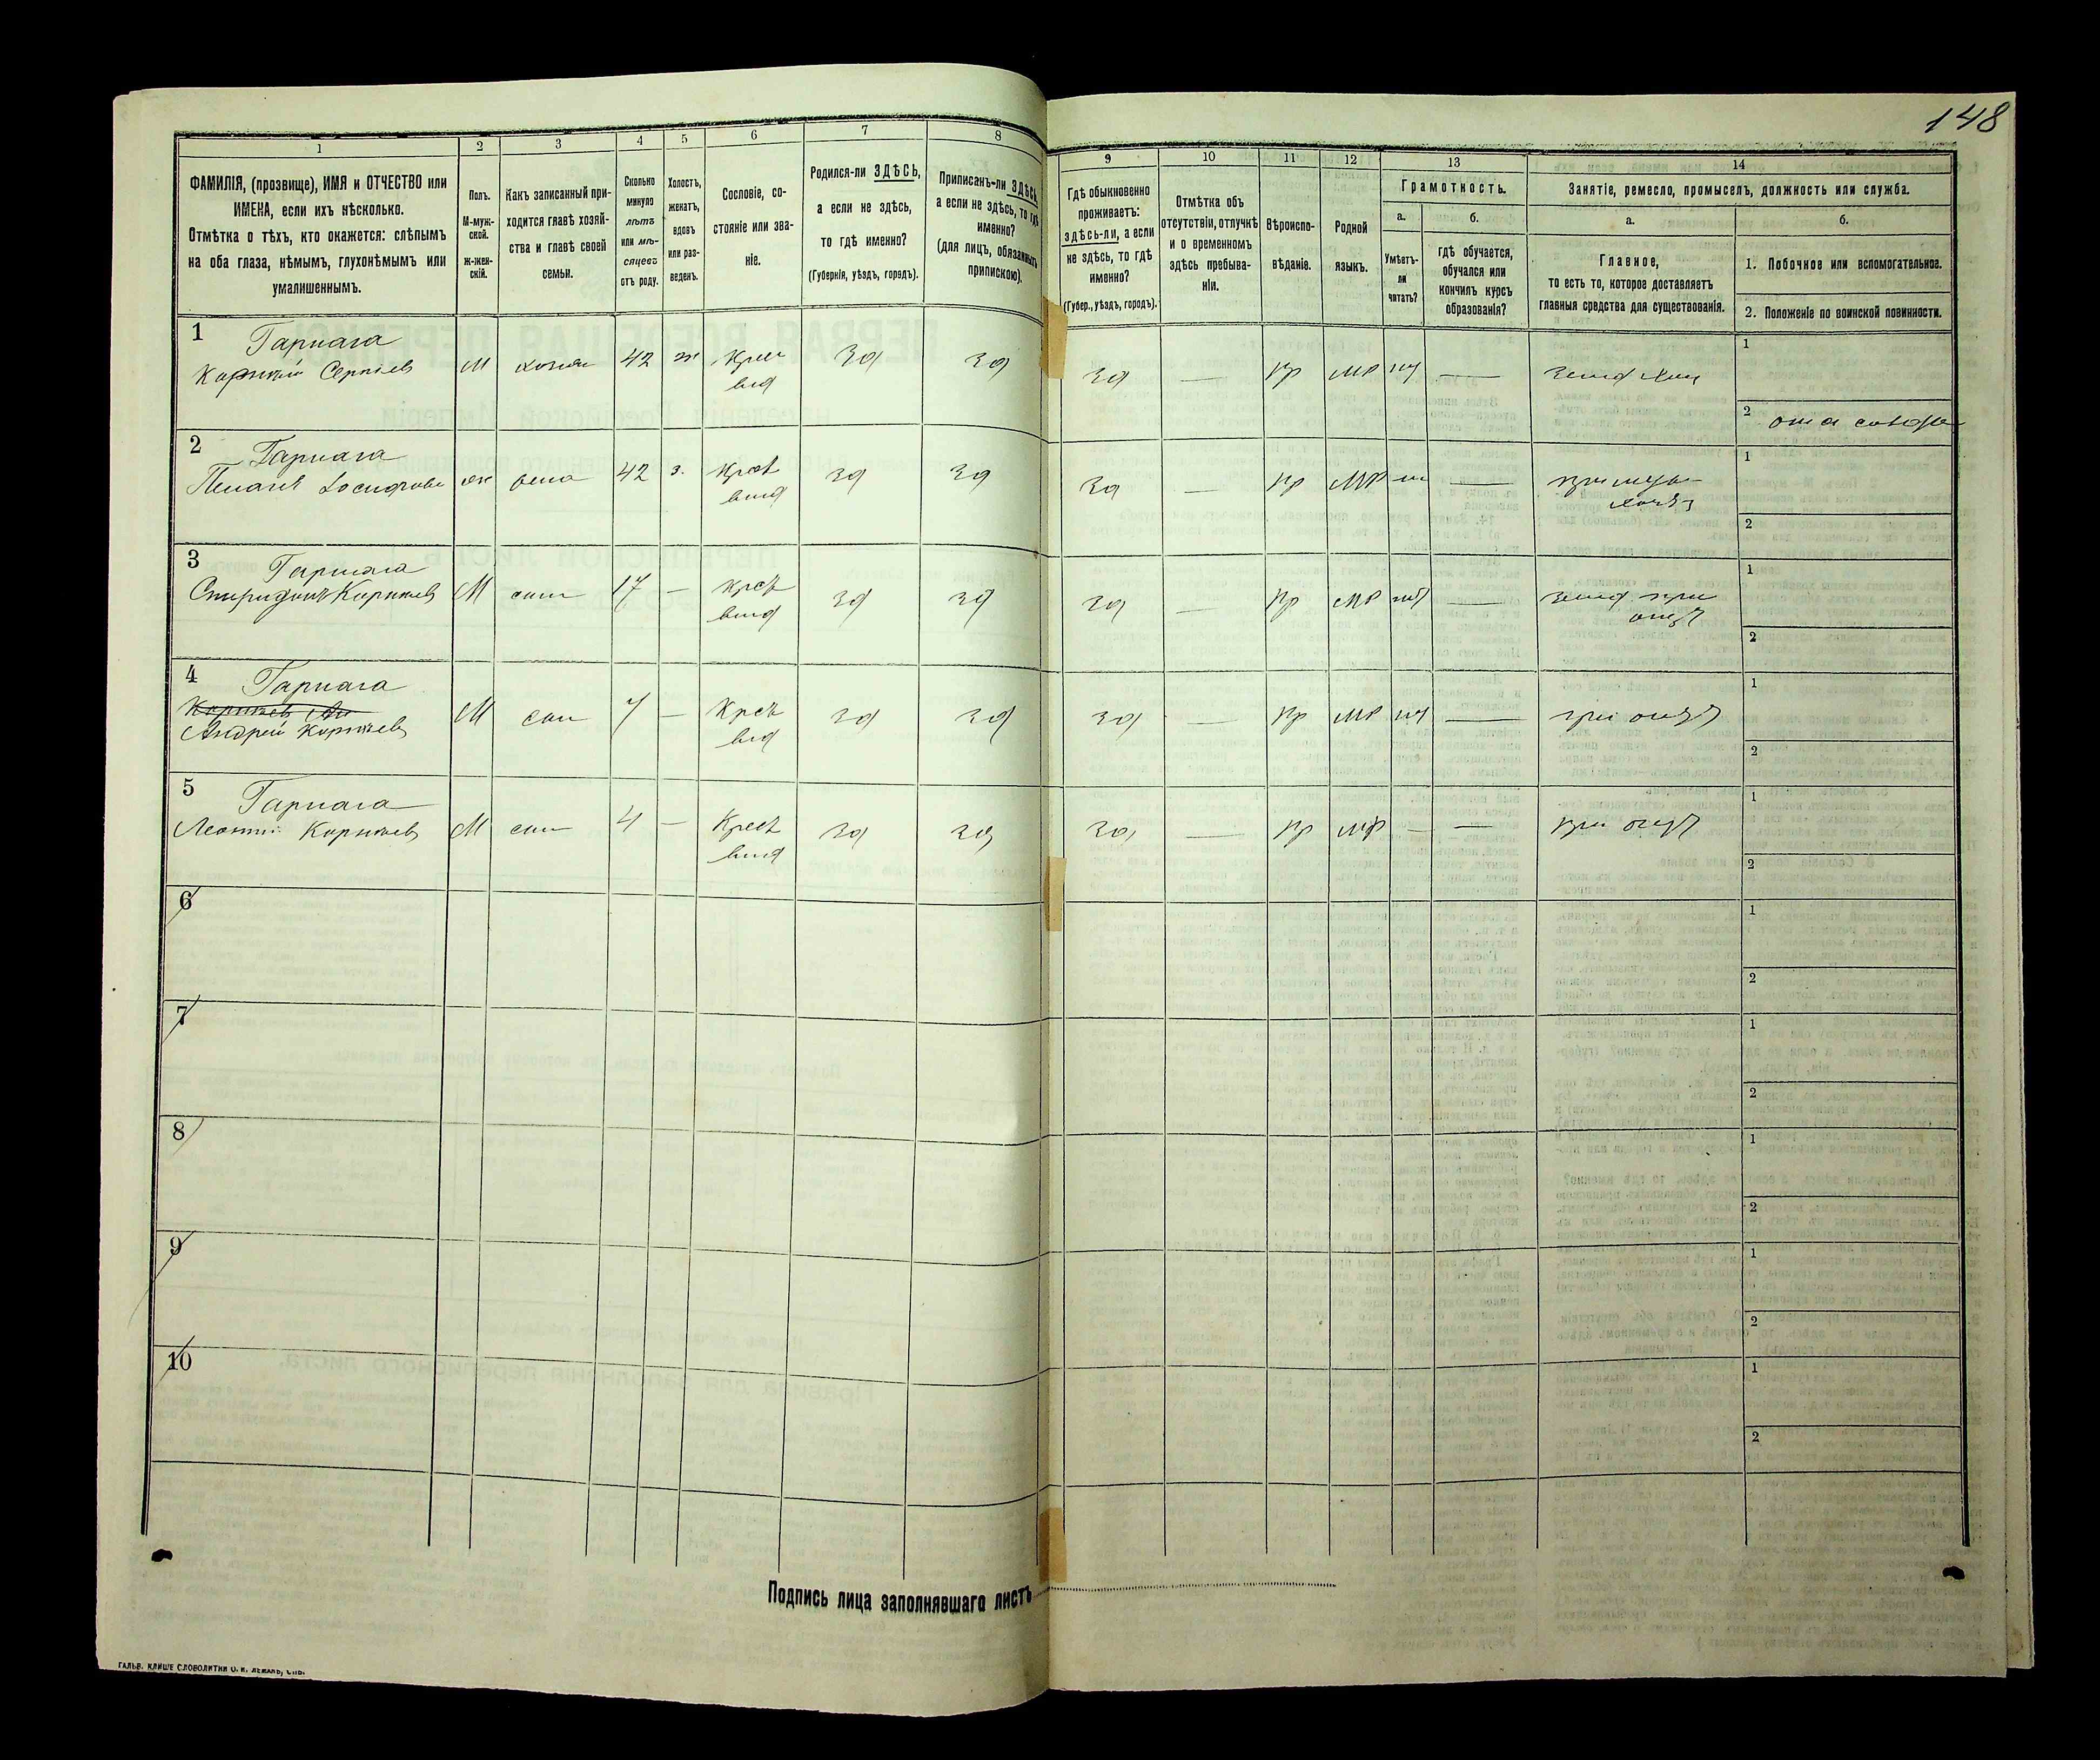 148
1
2
3
4
5
6
7
8
9
10
11
12
13
14
ФАМИЛІЯ, (прозвище), ИМЯ и ОТЧЕСТВО или
ИМЕНА, если ихъ нѣсколько.
Отмѣтка о тѣхъ, кто окажется: слѣпымъ
на оба глаза, нѣмымъ, глухонѣмымъ или
умалишеннымъ.
Полъ.
М-муж-
ской.
ж-жен-
скій.
Какъ записанный при-
ходится главѣ хозяй-
ства и главѣ своей
семьи.
Сколько
минуло
лѣтъ
или мѣ-
сяцевъ
отъ роду.
Холостъ,
женатъ,
вдовъ
или раз-
веденъ.
Сословіе, со-
стояніе или зва-
ніе.
Родился-ли ЗДѢСЬ,
а если не здѣсь,
то гдѣ именно?
(Губернія, уѣздъ, городъ).
Приписанъ-ли ЗДѢСЬ,
а если не здѣсь, то гдѣ
именно?
(для лицъ, обязанныхъ
припиской).
Гдѣ обыкновенно
проживаетъ:
здѣсь-ли, а если
не здѣсь, то гдѣ
именно?
(Губер., уѣздъ, городъ).
Отмѣтка объ
отсутствіи, отлучкѣ
и о временномъ
здѣсь пребыва-
ніи.
Вѣроиспо-
вѣданіе.
Родной
языкъ.
Грамотность.
а.
Умѣетъ-
ли
читать?
б.
гдѣ обучается,
обучался или
кончилъ курсъ
образованія?
Занятіе, ремесло, промыселъ, должность или служба.
а.
Главное,
то есть то, которое доставляетъ
главныя средства для существованія.
б.
1. Побочное или вспомогательное.
2. Положеніе по воинской повинности.
1
Гарнага
Корній Сергіев
М
хозяин
42
ж
Крес
влад
зд
зд
зд
—
пр
мр
нт
—
1
2
2
Гарнага
Пелагея Іосифова
жк
жена
42
з.
Крест
влад
зд
зд
зд
—
пр
мр
—
при муже
1
2
3
Гарнага
Спиридонъ Корніев
М
сын
17
—
Крест
влад
зд
зд
зд
—
пр
мр
—
1
2
4
Гарнага
Корніев Ан
Андрей Корніев
М
сын
7
—
Крест
влд
зд
зд
зд
—
пр
мр
нт
—
при отце
1
2
5
Гарнага
Леонтий Корніев
М
сын
4
—
Крест
влад
зд
зд
зд
—
пр
мр
—
—
при отце
1
2
6
1
2
7
1
2
8
1
2
9
1
2
10
1
2
Подпись лица заполнявшаго листъ